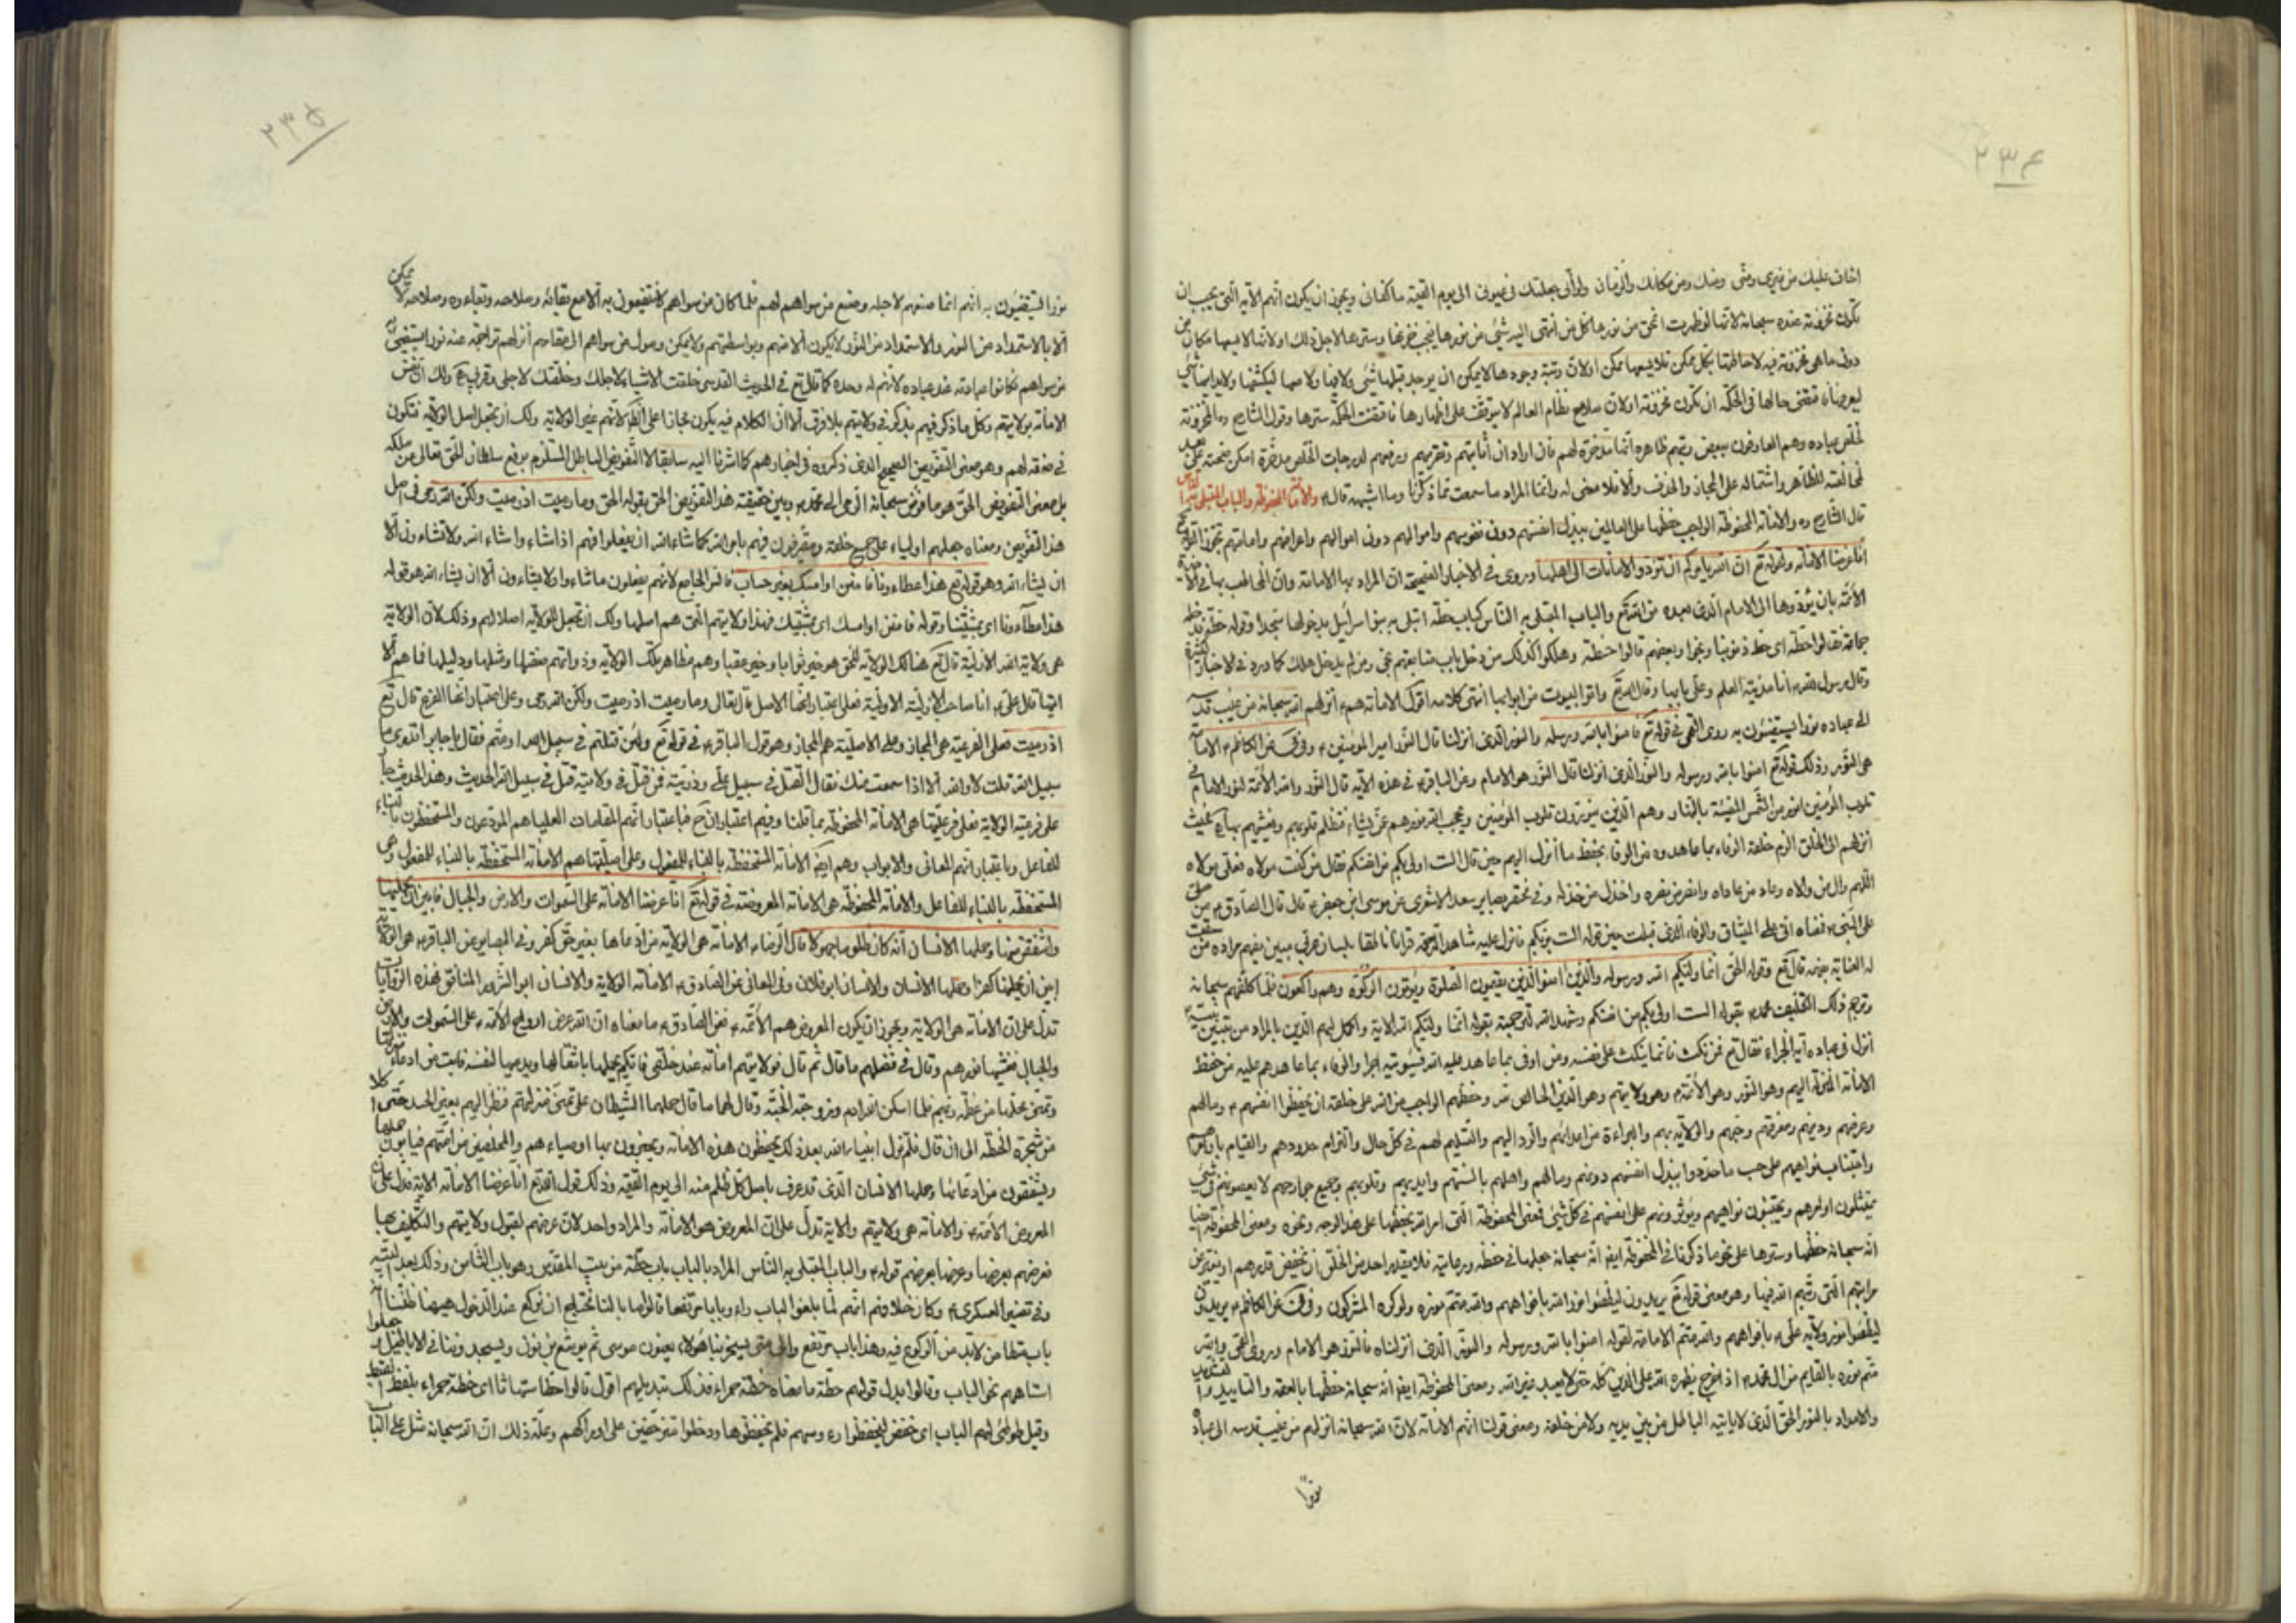 ٢٣٤
اخاف عليك من غيري ومني ومنك ومن مكانك والزمان ولو أني جعلتك في عيوني الى يوم القيمة ما كفاني ويجوز ان يكون انهم الآية التي يجب ان
تكون مخزونة عنده سبحانه لانها لو ظهرت انمحق من نورها كل من انتهى اليه شيء من نورها
دون ما هي مخزونة فيه
ليعرضاه فتقتضي حالها في الحكمة ان تكون مخزونة او لان صلاح نظام العالم لا يتوقف على اظهارها فاقتضت الحكمة سترها وقول الشارح ره المخزونة
لخلص عباده وهم العارفون
لمخالفته للظاهر واشتماله على المجاز والحذف والا فلا معنى له وانما المراد ما سمعت مما ذكرنا وما اشبهه قال ع والامانة المحفوظة والباب المبتلى به الناس
قال الشارح ره والامانة المحفوظة الواجب حفظها على العالمين ببذل انفسهم دون نفوسهم واموالهم دون اموالهم واعراضهم
انا عرضنا الامانة وقوله تع ان الله يأمركم ان تؤدوا الامانات الى اهلها وروى في الاخبار الصحيحة ان المراد بها الامامة
الأئمة بان يؤدوها الى الامام الذي بعده من الله تع والباب المبتلى به الناس كباب حطة ابتلى به بنو اسرائيل بدخولها سجدا وقوله حطة
جماعة فقالوا حطة اى حط ذنوبنا ونجوا وبعضهم قالوا حنطة وهلكوا كذلك من دخل باب متابعتهم نجى ومن لم يدخل هلك كما ورد في الاخبار الكثيرة
وقال رسول الله ص انا مدينة العلم وعلي بابها وقال الله تع واتوا البيوت من ابوابها انتهى كلامه اقول الامانة هم ع انزلهم الله سبحانه من غيب قدسه
الى عباده نورا يستضيئون به روى القمي في قوله تع فامنوا بالله ورسله والنور الذي انزلنا قال النور امير المؤمنين ع وفي في عن الكاظم ع الامامة
هي النور وذلك قوله تع امنوا بالله ورسوله والنور الذي انزلنا قال النور هو الامام وعن الباقر ع في هذه الآية قال النور والله الأئمة لنور الامام في
قلوب المؤمنين انور من الشمس المضيئة بالنهار وهم الذين ينورون قلوب المؤمنين ويحجب الله نورهم عمن يشاء فتظلم قلوبهم ويغشيهم بها
انزلهم الى الخلق الزم خلقه الوفاء بما عاهدوه من الوفاء بحفظ ما أنزل اليهم حين قال الست اولى بكم من انفسكم فقال من كنت مولاه فعلي مولاه
اللهم وال من والاه وعاد من عاداه وانصر من نصره واخذل من خذله وفي مختصر بصائر سعد الاشعري عن موسى ابن جعفر ع قال قال الصادق ع من صلى
على النبي ص فمعناه اني على الميثاق والوفاء الذي قبلت حين قوله الست بربكم فانزل عليه
له العناية بفهمه قال تع وقوله الحق انما وليكم الله ورسوله والذين امنوا الذين يقيمون الصلوة ويؤتون الزكوة وهم راكعون فلما كلفهم سبحانه
انزل في عباده آية الجزاء فقال تع فمن نكث فانما ينكث على نفسه ومن اوفى بما عاهد عليه الله فسيؤتيه اجرا والوفاء بما عاهدهم عليه من حفظ
الامانة المنزلة اليهم وهو النور وهو الأئمة ع وهو ولايتهم وهو الدين الخالص لله وحفظهم الواجب من الله على خلقه ان يحفظوا انفسهم ع ومالهم
وعرضهم ودينهم ومعرفتهم وحبهم والولاية بهم والبراءة من اعدائهم والرد اليهم والتسليم لهم في كل حال والتزام حدودهم والقيام باوامرهم
واجتناب نواهيهم على حسب ما حددوا ببذل انفسهم دونهم ومالهم واهلهم بالسنتهم وايديهم وقلوبهم وجميع جوارحهم لا يعصونهم في شيء
يمتثلون اوامرهم ويجتنبون نواهيهم ويؤثرونهم على انفسهم في كل شيء فمعنى المحفوظة التي امر الله بحفظها على هذا الوجه ونحوه ومعنى المحفوظة ايضا
انه سبحانه حفظها وسترها على نحو ما ذكرنا في المخزونة ايضا انه سبحانه جعلها في حفظه ورعايته فلا يقدر احد من الخلق ان يخفض قدرهم او يغير عن
مراتبهم التي رتبهم الله فيها وهو معنى قوله تع يريدون ليطفئوا نور الله بافواههم والله متم نوره ولو كره المشركون وفي في عن الكاظم ع يريدون
ليطفئوا نور ولاية علي ع بافواههم والله متم الامامة لقوله امنوا بالله ورسوله والنور الذي انزلناه فالنور هو الامام وروى القمي والله
متم نوره بالقايم من ال محمد ع اذا خرج يظهره الله على الدين كله حتى لا يعبد غير الله ومعنى المحفوظة ايضا انه سبحانه حفظها بالعصمة والتاييد والتسديد
والامداد بالنور الحق الذي لا ياتيه الباطل من بين يديه ولا من خلفه ومعنى قولنا انهم الامانة لان الله سبحانه انزلهم من غيب قدسه الى عباده
نورا
٢٣٥
نورا يستضيئون به انهم انما صنعهم لاجله وصنع من سواهم لهم فلما كان من سواهم لا ينتفعون به الا مع بقائه وصلاحه وبقاءه وصلاحه لا يمكن
الا بالاستمداد من النور والاستمداد من النور لا يكون الا منهم وبواسطتهم ولا يمكن وصول من سواهم الى مقامهم انزلهم تراجمة عنه نورا يستضيئ به
من سواهم فكانوا امانته عند عباده لانهم له وحده كما قال تع في الحديث القدسي خلقت الاشياء لاجلك وخلقتك لاجلي
الامانة بولايتهم وكل ما ذكر فيهم يذكر في ولايتهم بلا فرق الا ان الكلام فيه يكون مجازا على الظاهر لانهم غير الولاية ولك ان تجعل اصل الولاية فتكون
في صفة لهم وهو معنى التفويض الصحيح الذي ذكروه في اخبارهم كما اشرنا اليه سابقا لا التفويض الباطل المستلزم برفع سلطان الحق تعالى من ملكه
بل معنى التفويض الحق هو ما فوض سبحانه الوحى الى محمد ص وبين حقيقة هذا التفويض الحق بقوله الحق وما رميت اذ رميت ولكن الله رمى في اصل
هذا التفويض ومعناه جعلهم اولياء على جميع خلقه ويتصرفون فيهم بامر الله كما شاء الله ان يفعلوا فهم اذا شاء واشاء الله ولا تشاءون الا
ان يشاء الله وهو قوله تع هذا عطاءنا فامنن او امسك بغير حساب فالسر الجامع لانهم يفعلون ما شاءوا ولا يشاءون الا ان يشاء الله هو قوله
هذا عطاءنا اى بمشيتنا وقوله فامنن او امسك اى بمشيتك فهذا ولايتهم التي هم اصلها ولك ان تجعل الولاية اصلا لهم وذلك لان الولاية
هي ولاية الله الازلية قال تع هنالك الولاية لله الحق هو خير ثوابا وخير عقبا وهم مظاهر تلك الولاية وذواتهم
انا صاحب الازلية الاولية فعلى اعتبار انها الاصل قال تعالى وما رميت اذ رميت ولكن الله رمى وعلى اعتبار انها الفرع قال تع
اذ رميت فعلى الفرعية هي المجاز وعلى الاصلية هم المجاز وهو قول الباقر ع في قوله تع ولئن قتلتم في سبيل الله او متم فقال يا جابر اتدري ما
سبيل الله قلت لا والله الا اذا سمعت منك فقال القتل في سبيل علي وذريته فمن قتل في ولايته قتل في سبيل الله الحديث وهذا الحديث
على فرعية الولاية فعلى فرعيتها هي الامانة المحفوظة بما قلنا وفيهم اعتباران فباعتبار انهم المقامات العليا هم المودعون والمستحفظون بالبناء
للفاعل وباعتبار انهم المعاني والابواب وهم ايضا الامانة المستحفظة بالبناء للمفعول وعلى اصليتها هم الامانة المستحفظة بالبناء للمفعول وهي
المستحفظة بالبناء للفاعل والامانة المحفوظة هي الامانة المعروضة في قوله تع انا عرضنا الامانة على السموات والارض والجبال فابين ان يحملنها
واشفقن منها وحملها الانسان انه كان ظلوما جهولا قال الرضا ع الامانة هي الولاية من ادعاها بغير حق كفر وفي البصاير عن الباقر ع هي الولاية
ابين ان يحملنها كفرا وحملها الانسان والانسان ابو فلان وفي المعاني عن الصادق ع الامانة الولاية والانسان ابو الشرور المنافق فهذه الروايات
تدل على ان الامانة هي الولاية ويجوز ان يكون المعروض هم الأئمة ع فعن الصادق ع ما معناه ان الله عرض ارواح الأئمة ع على السموات والارض
والجبال فغشيها نورهم وقال في فضلهم ما قال ثم قال فولايتهم امانة عند خلقي فايكم يحملها باثقالها ويدعيها لنفسه فابت من ادعاء منزلتها
وتمنى محلها من عظمة ربهم فلما اسكن الله ادم وزوجته الجنة وقال لهما ما قال حملهما الشيطان على تمنى منزلتهم فنظرا اليهم بعين الحسد حتى اكلا
من شجرة الحنطة الى ان قال فلم تزل انبياء الله بعد ذلك يحفظون هذه الامانة ويخبرون بها اوصياءهم والمخلصين من اممهم فيابون حملها
ويشفقون من ادعائها وحملها الانسان الذي قد عرف باصل كل ظلم منه الى يوم القيمة وذلك قول الله تع انا عرضنا الامانة الاية فدل على ان
المعروض الأئمة ع والامانة هي ولايتهم والاية تدل على ان المعروض هو الامانة والمراد واحد لان عرضهم لقبول ولايتهم والتكليف بها
فعرضهم بعرضها وعرضها بعرضهم قوله ع والباب المبتلى به الناس المراد بالباب باب حطة من بيت المقدس وهو باب الثامن وذلك بعد التيه
وفي تفسير العسكري ع وكان خلافهم انهم لما بلغوا الباب راوا بابا مرتفعا قالوا ما بالنا نحتاج ان نركع عند الدخول هيهنا ظننا انه
باب متطامن لابد من الركوع فيه وهذا باب مرتفع والى متى يسخر بنا هؤلاء يعنون موسى ثم يوشع بن نون ويسجد وننا في الاباطيل وجعلوا
استاههم نحو الباب وقالوا بدل قولهم حطة ما معناه حنطة حمراء فذلك تبديلهم اقول قالوا حطا سمقاثا اى حنطة حمراء
وقيل طوطئ لهم الباب اى خفض ليخفضوا رءوسهم فلم يخفضوها ودخلوا متزحفين على اوراكهم وعلة ذلك ان الله سبحانه مثل على الباب